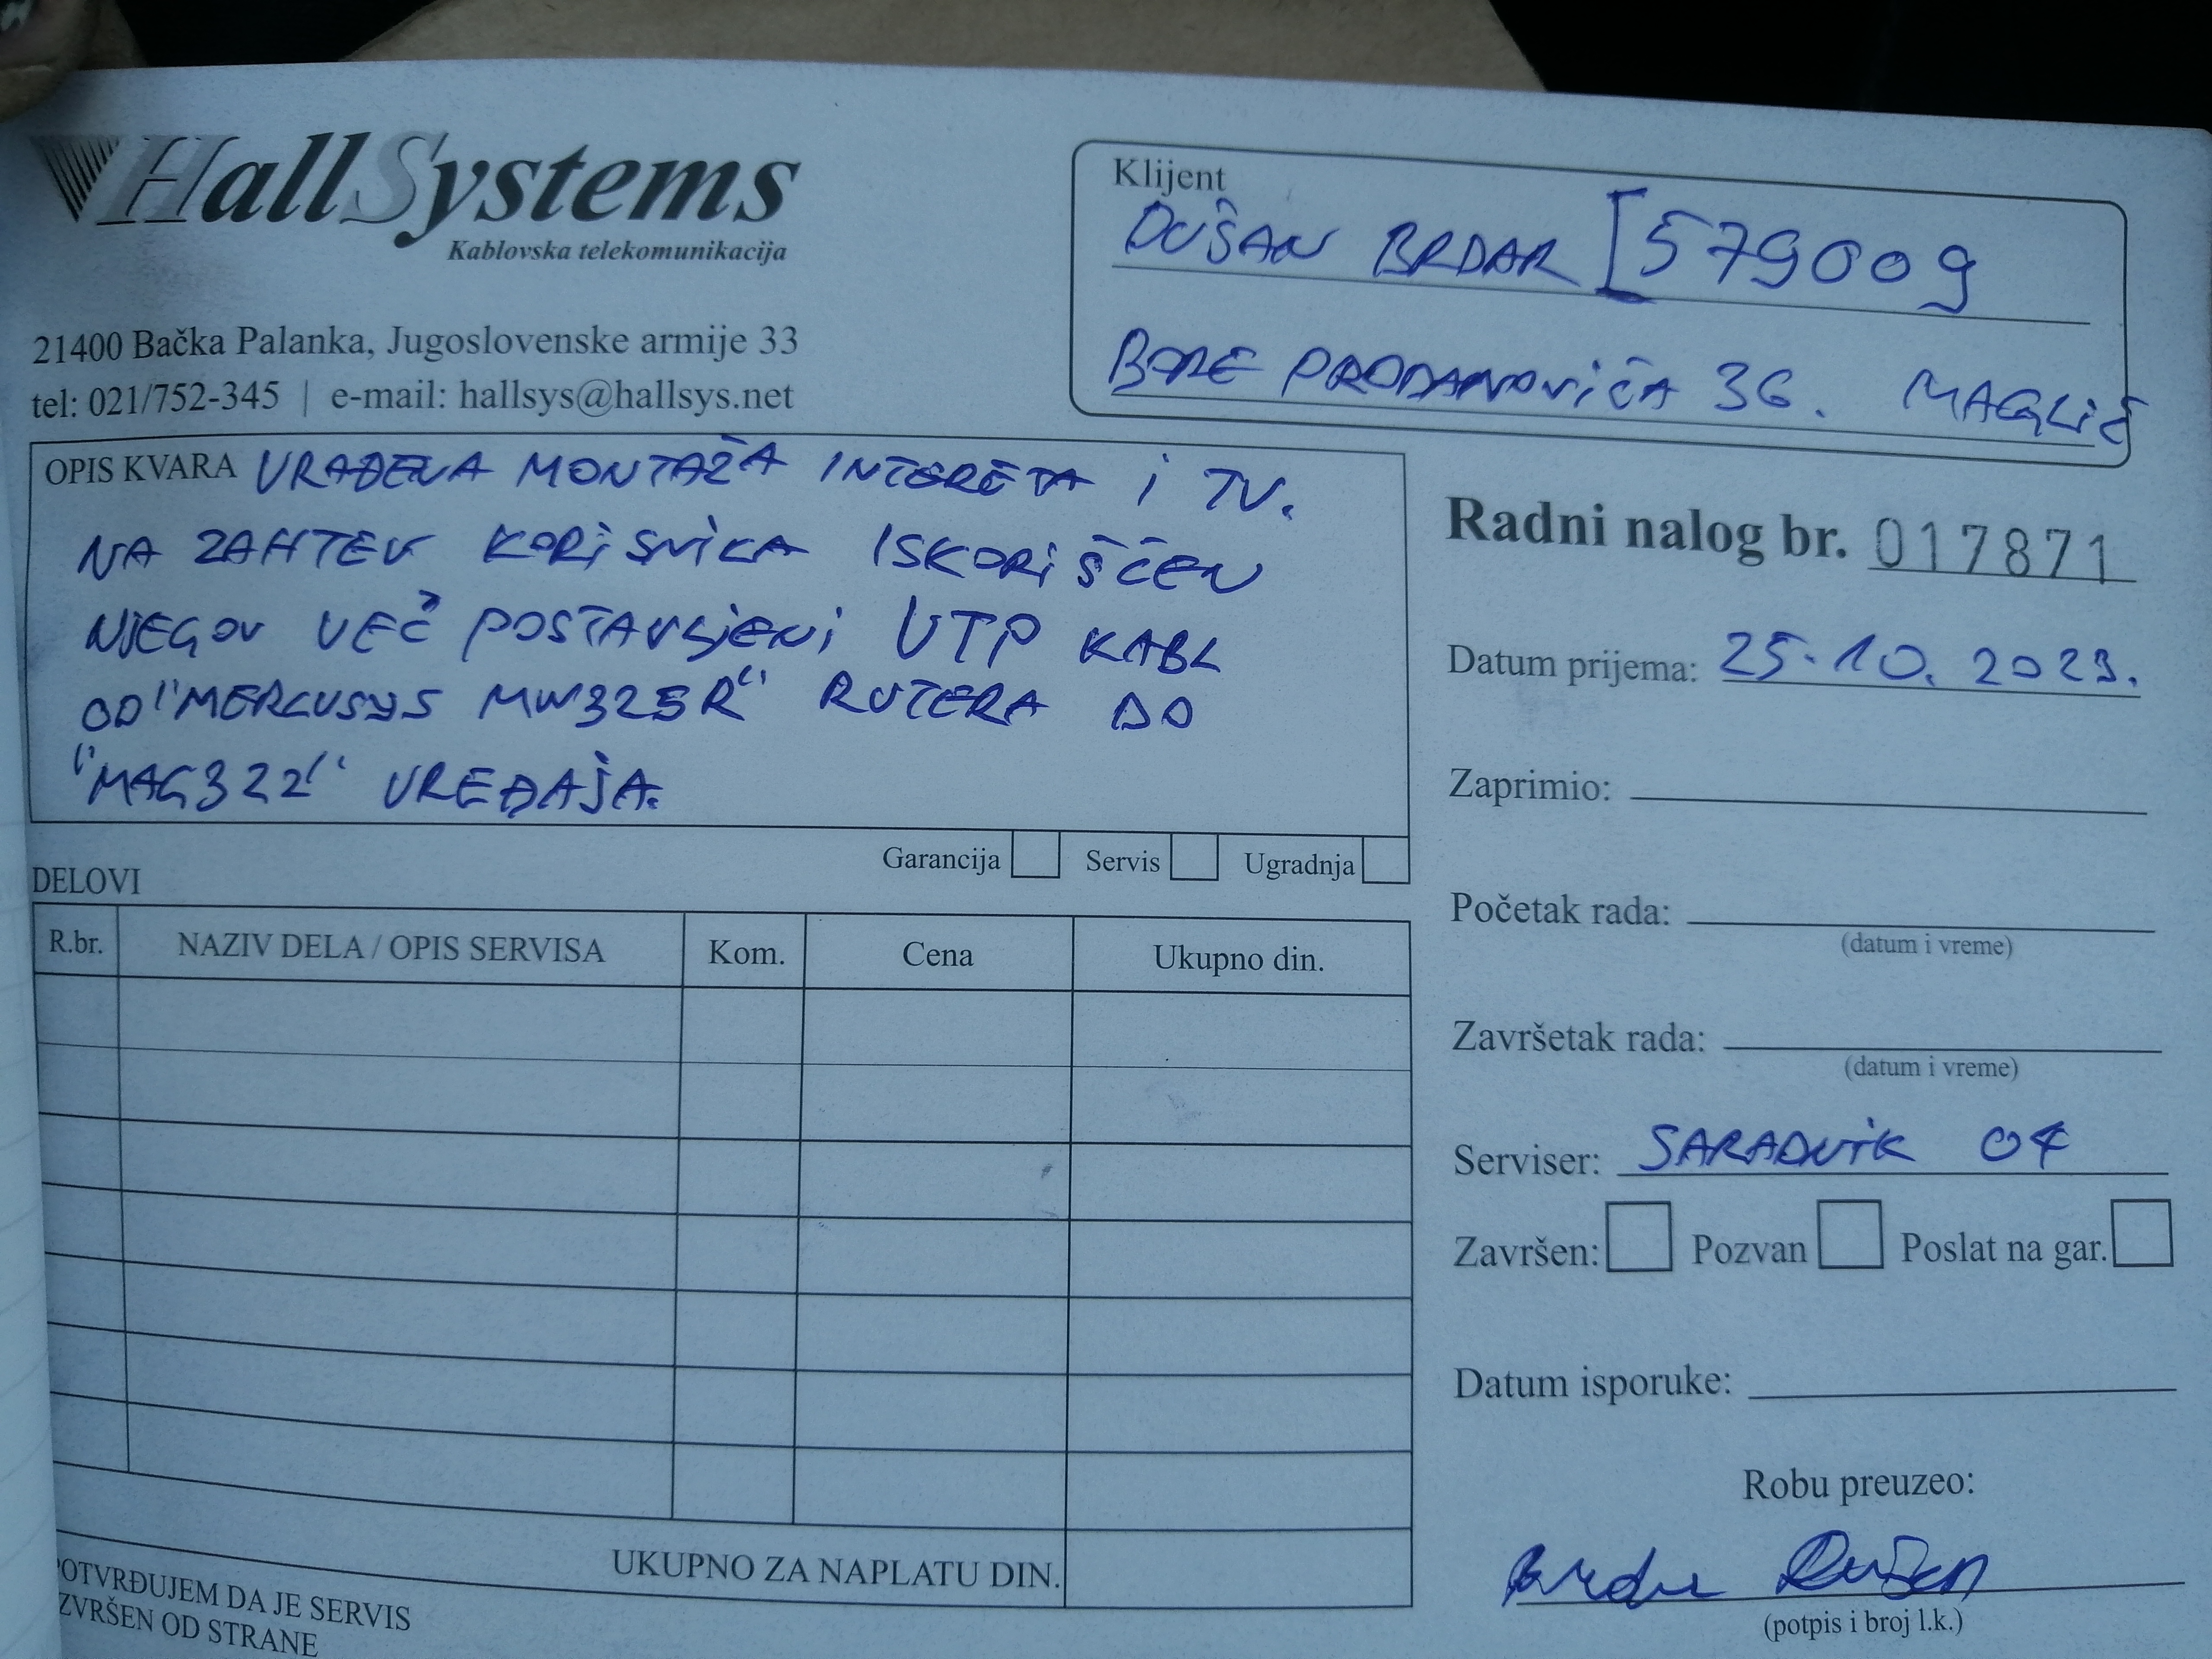 HallSystems
Kablovska telekomunikacija
21400 Bačka Palanka, Jugoslovenske armije 33
tel: 021/752-345 | e-mail: hallsys@hallsys.net
Klijent
DUŠAN BRDAR [579009
BORE PRODANOVIĆA 36. MAGLIĆ
OPIS KVARA URAĐENA MONTAŽA INTERETA I TV.
NA ZAHTEV KORISNIKA ISKORIŠĆEN
NJEGOV VEĆ POSTAVLJENI UTP KABL
OD "MERCUSYS MW325R" RUTERA DO
"MAG322" UREĐAJA.
Garancija Servis Ugradnja
Radni nalog br. 017871
Datum prijema: 25.10.2023.
Zaprimio:
Početak rada:
(datum i vreme)
Završetak rada:
(datum i vreme)
Serviser: SARADNIK 04
Završen: Pozvan Poslat na gar.
Datum isporuke:
Robu preuzeo:
Brdar Dušan
(potpis i broj l.k.)
DELOVI
R.br. NAZIV DELA / OPIS SERVISA Kom. Cena Ukupno din.
UKUPNO ZA NAPLATU DIN.
POTVRĐUJEM DA JE SERVIS
IZVRŠEN OD STRANE